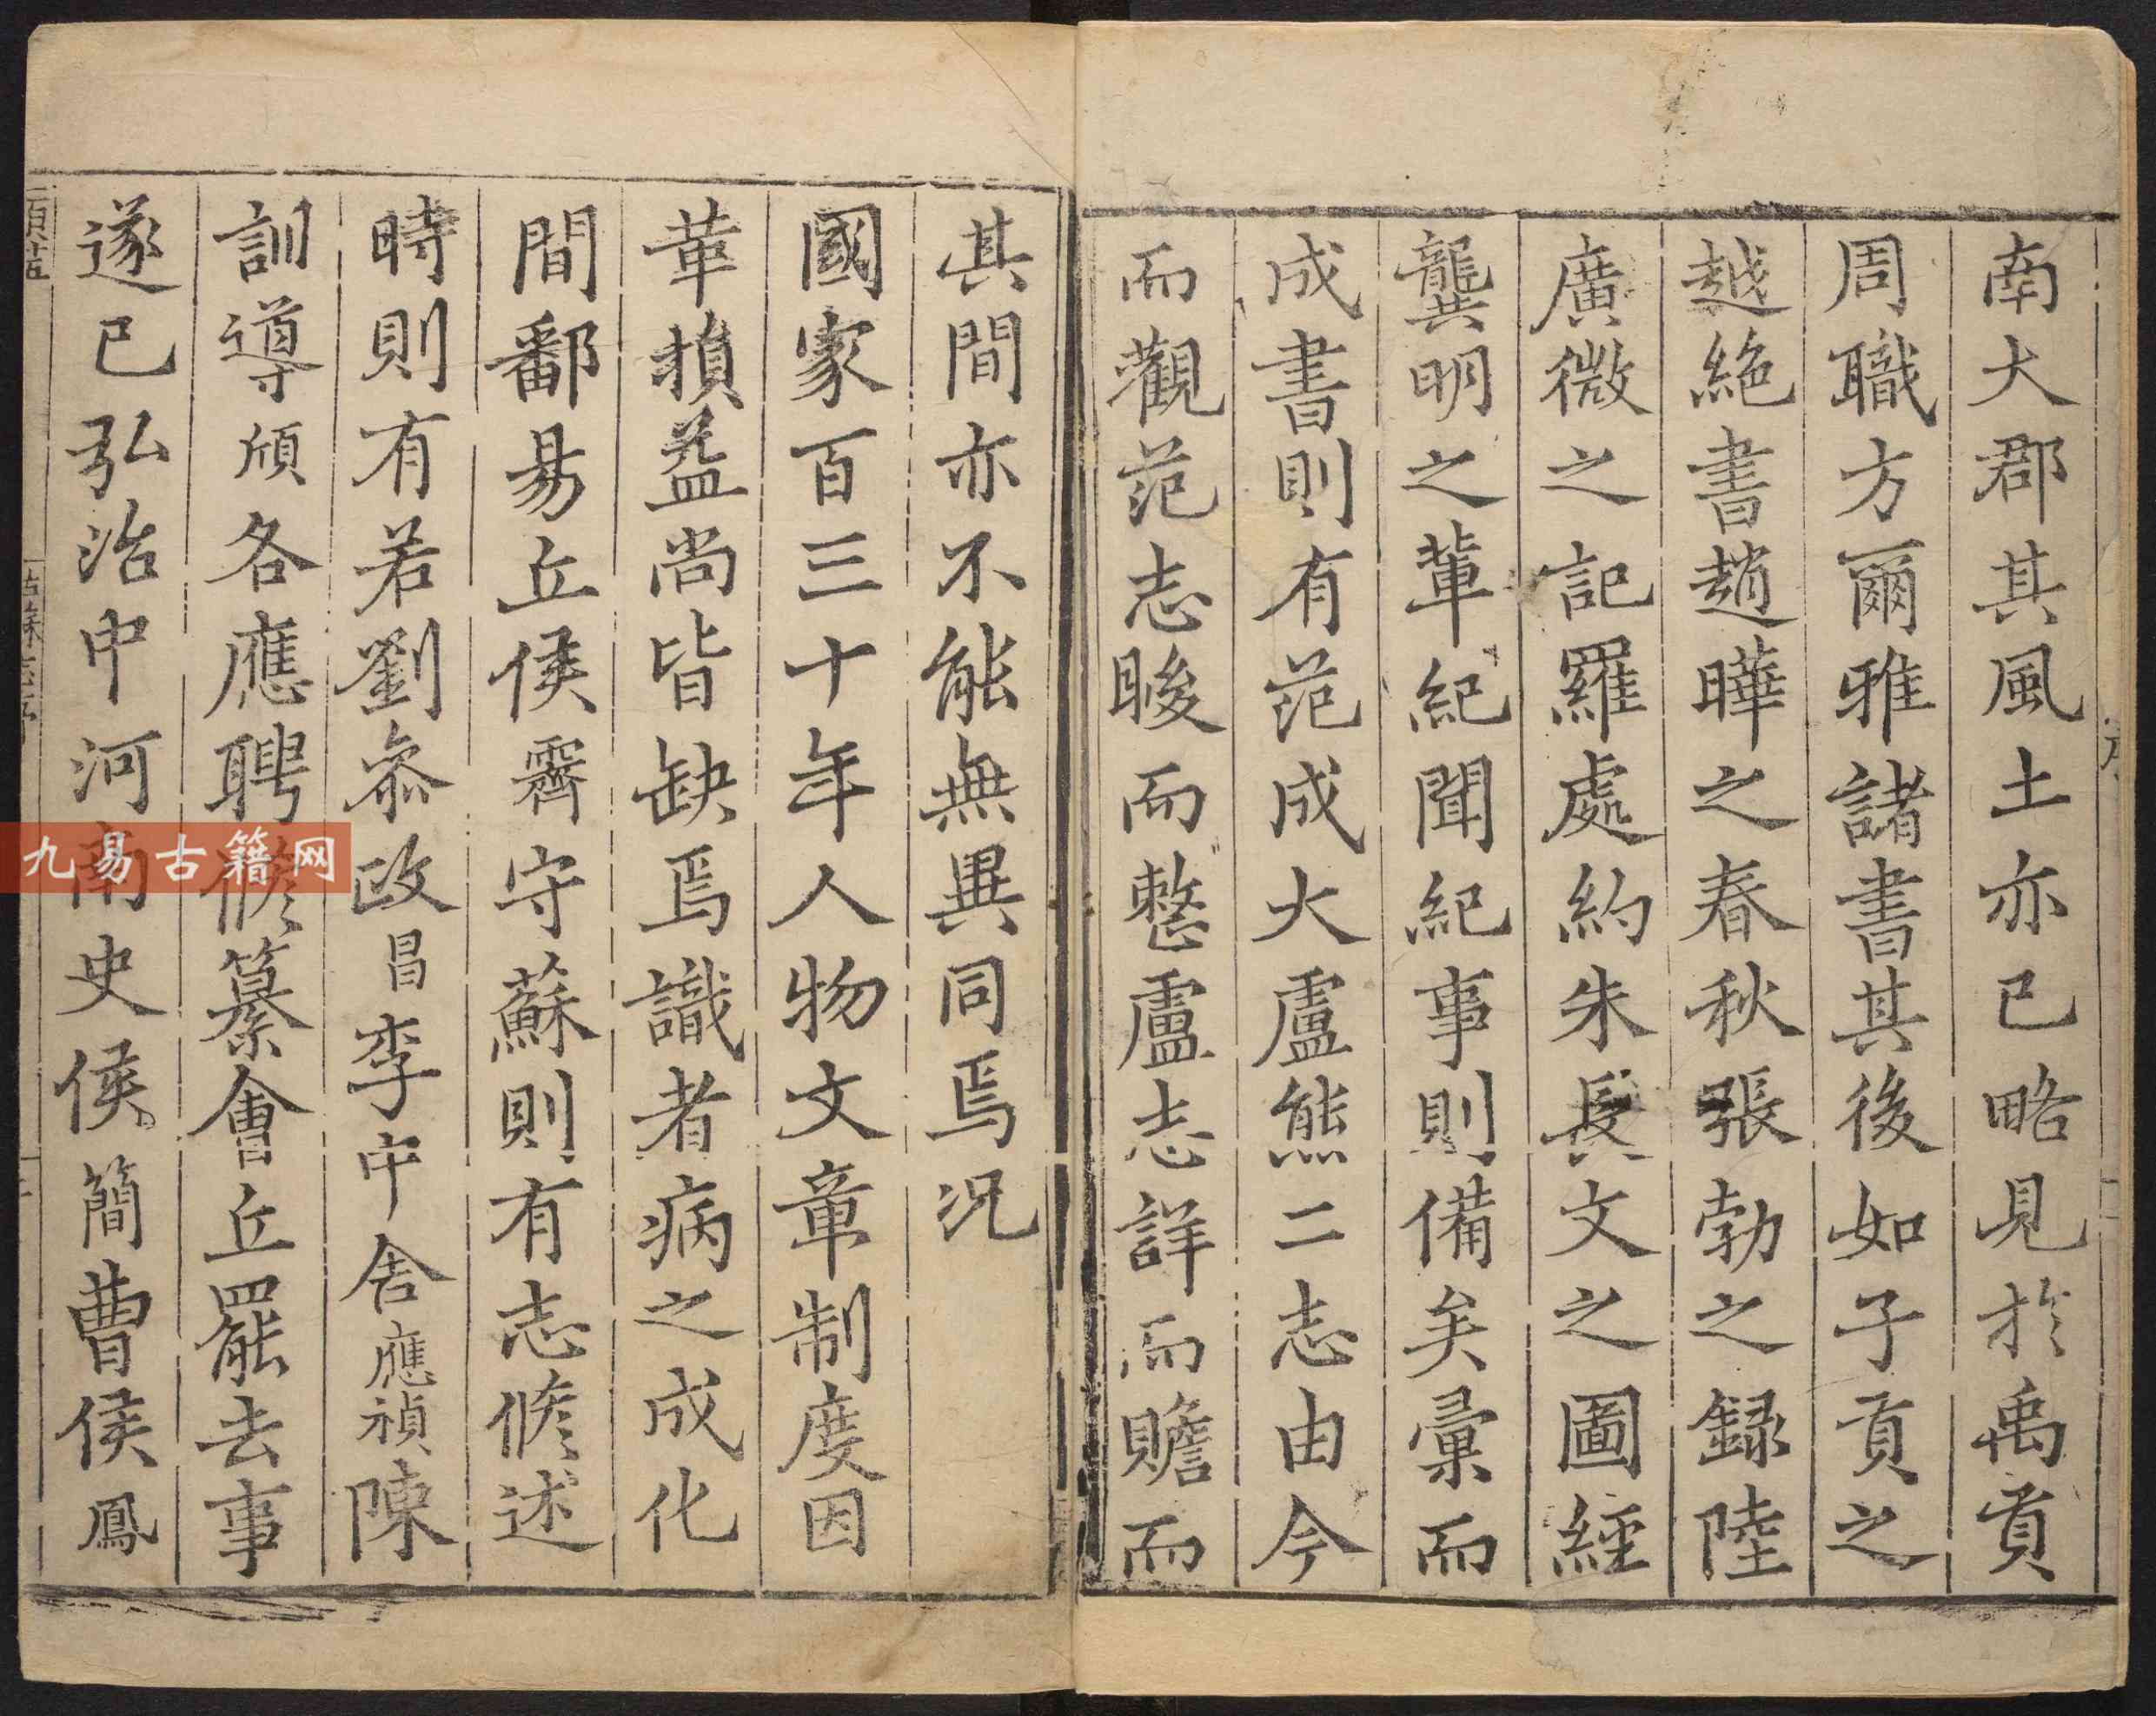 南大郡其風土亦已略見於禹貢
周職方爾雅諸書其後如子貢之
越絶書趙曄之春秋張勃之録陸
廣微之記羅處約朱長文之圖經
龔明之輩紀聞紀事則備矣彙而
成書則有范成大盧熊二志由今
而觀范志畯而整盧志詳而贍而
其間亦不能無異同焉况
國家百三十年人物文章制度因
革損益尚皆缺焉識者病之成化
間鄱昜丘侯霽守蘇則有志脩述
時則有若劉叅政昌李中舍應禎陳
訓導頎各應聘脩纂會丘罷去事
遂已弘治中河南史侯簡曹侯鳳
九易古籍网